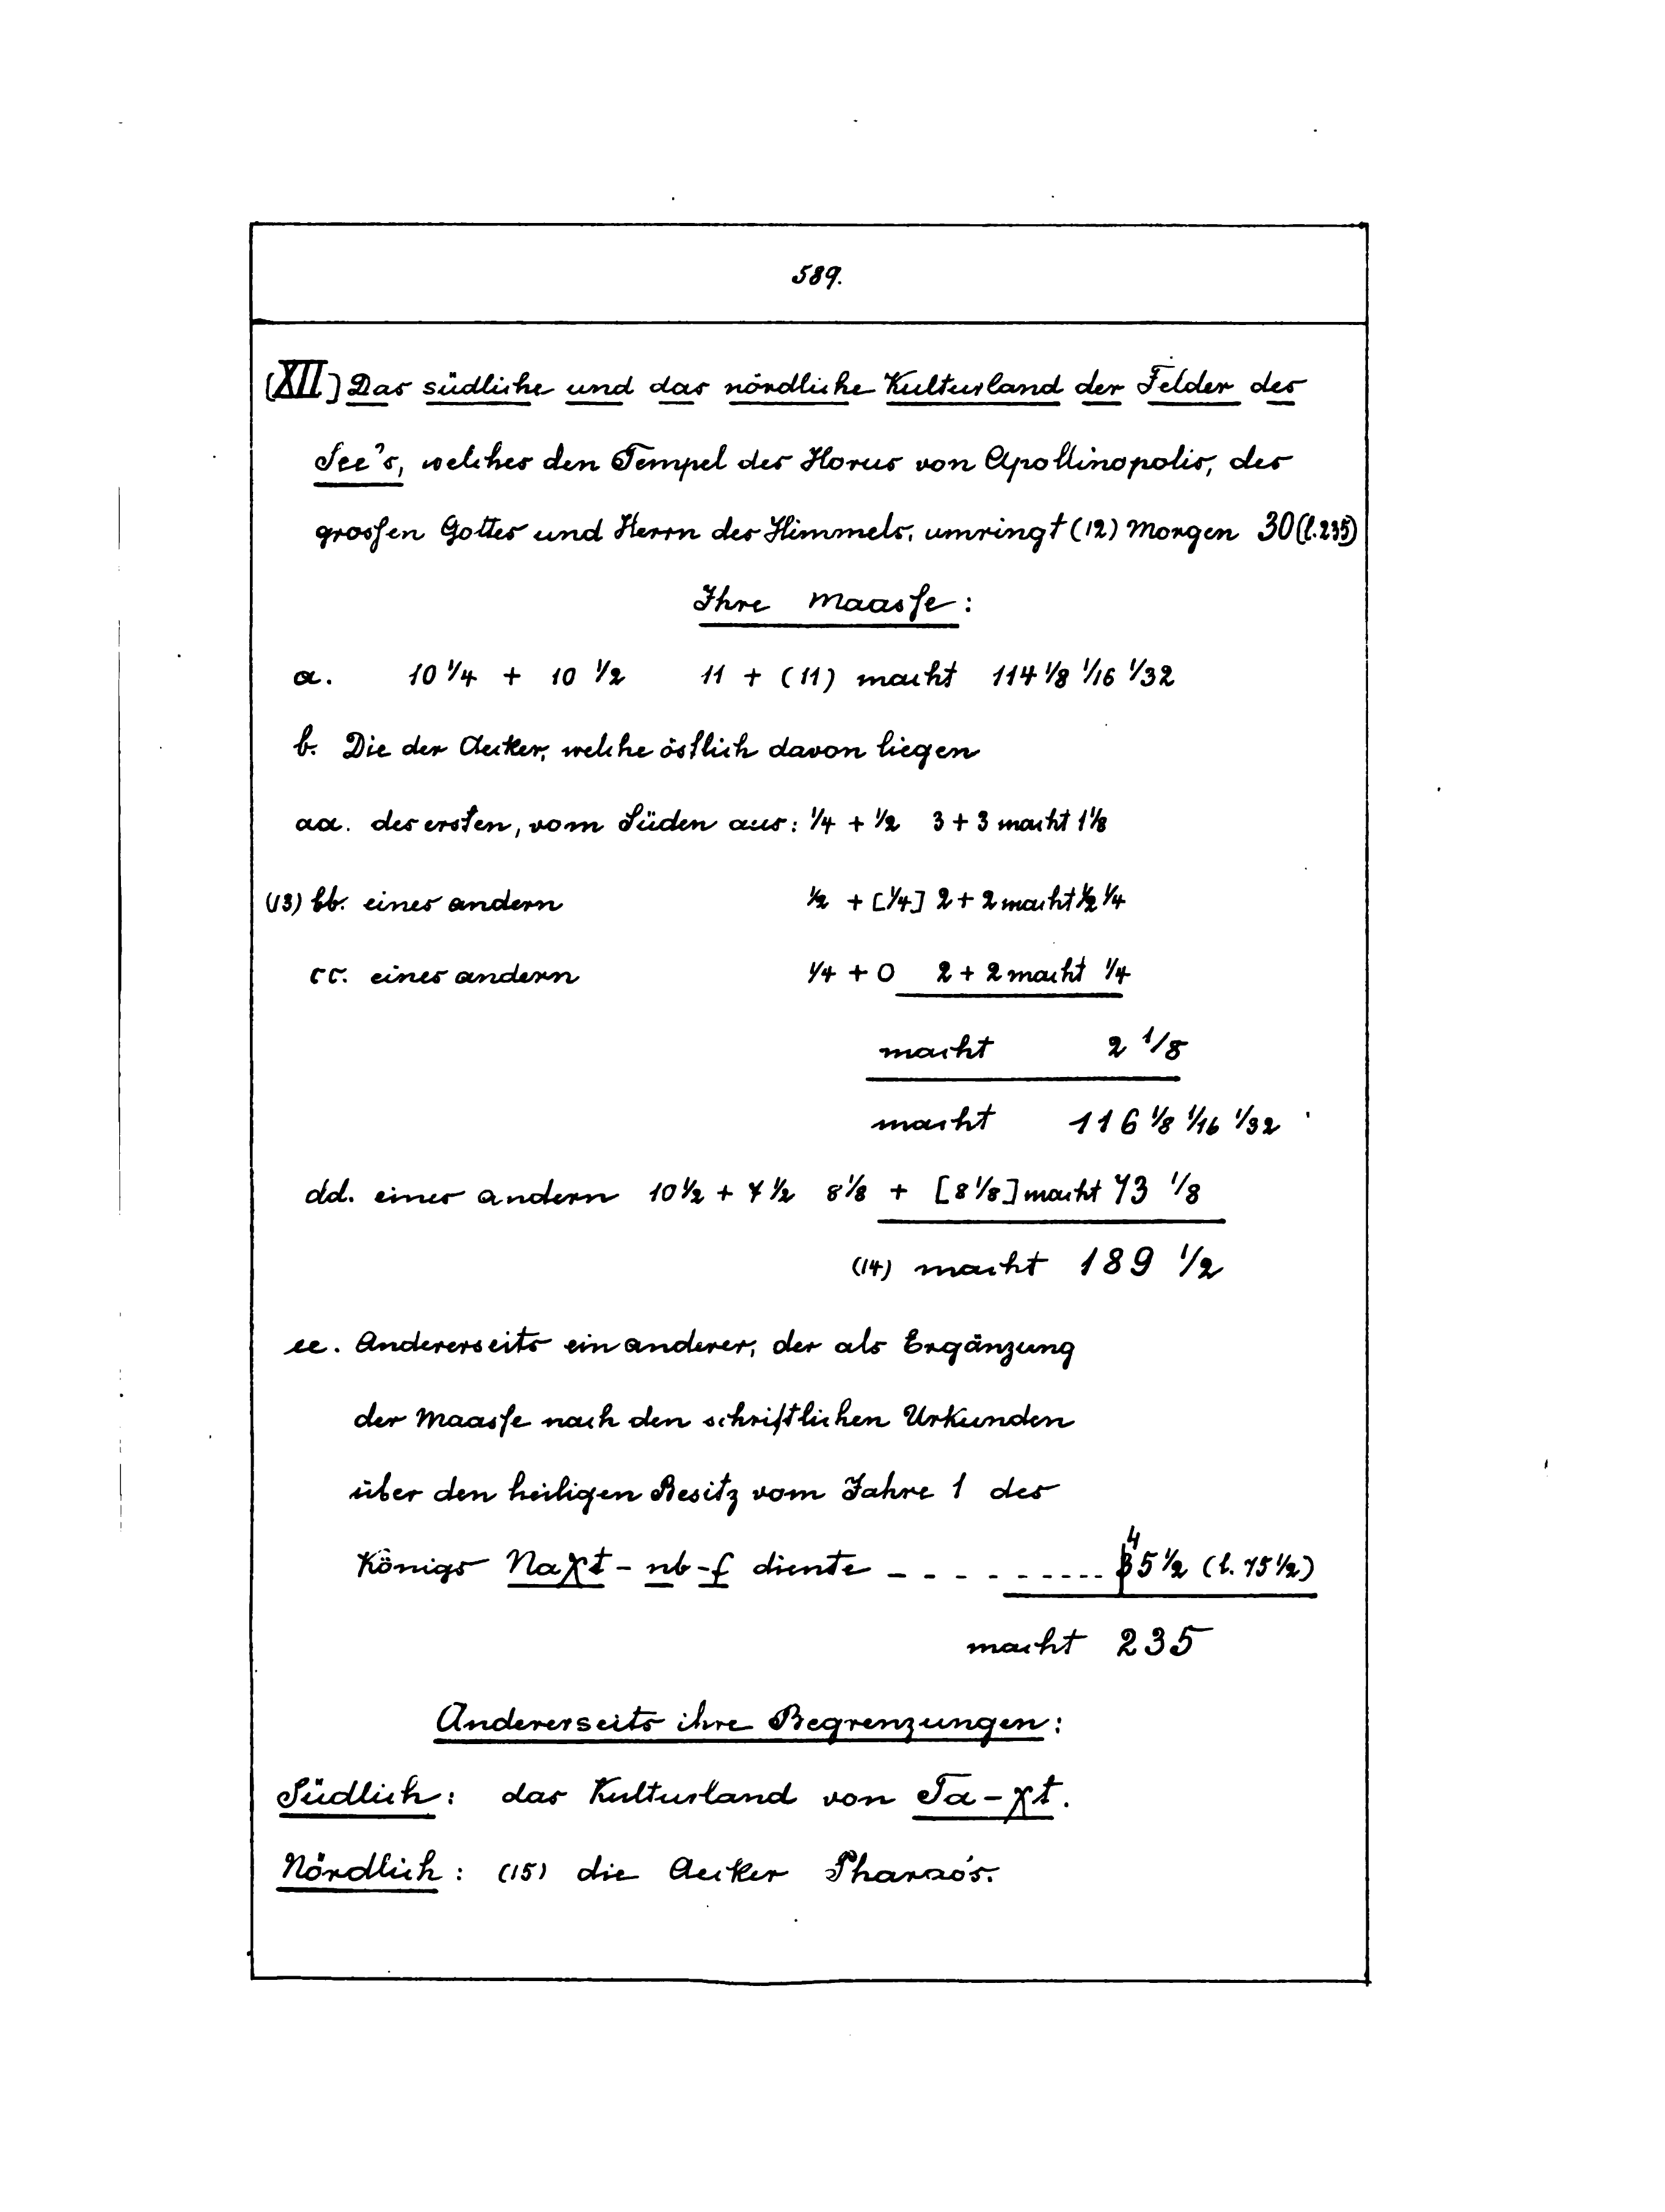 589.
[XII.] Das südliche und das nördliche Kulturland der Felder des
See's, welches den Tempel des Horus von Apollinopolis, des
grosſen Gottes und Herrn des Himmels, umringt (12) Morgen 30 (l. 235)
Ihre Maasſe:
a. 10 1/4 + 10 1/2 11 + (11) macht 114 1/8 1/16 1/32
b. Die der Aecker, welche östlich davon liegen
aa. des ersten, vom Süden aus: 1/4 + 1/2 3 + 3 macht 1 1/8
(13) bb. eines andern 1/2 + [1/4] 2 + 2 macht 1/2 1/4
cc. eines andern 1/4 + 0 2 + 2 macht 1/4
macht 2 1/8
macht 116 1/8 1/16 1/32
dd. eines andern 10 1/2 + 7 1/2 8 1/8 + [8 1/8] macht 73 1/8
(14) macht 189 1/2
ee. Andererseits ein anderer, der als Ergänzung
der Maasſe nach den schriftlichen Urkunden
über den heiligen Besitz vom Jahre 1 des
Königs Naχt-nb-f diente ---------- 45 1/2 (l. 75 1/2)
macht 235
Andererseits ihre Begrenzungen:
Südlich: das Kulturland von Ta-χt.
Nördlich: (15) die Aecker Pharao's.